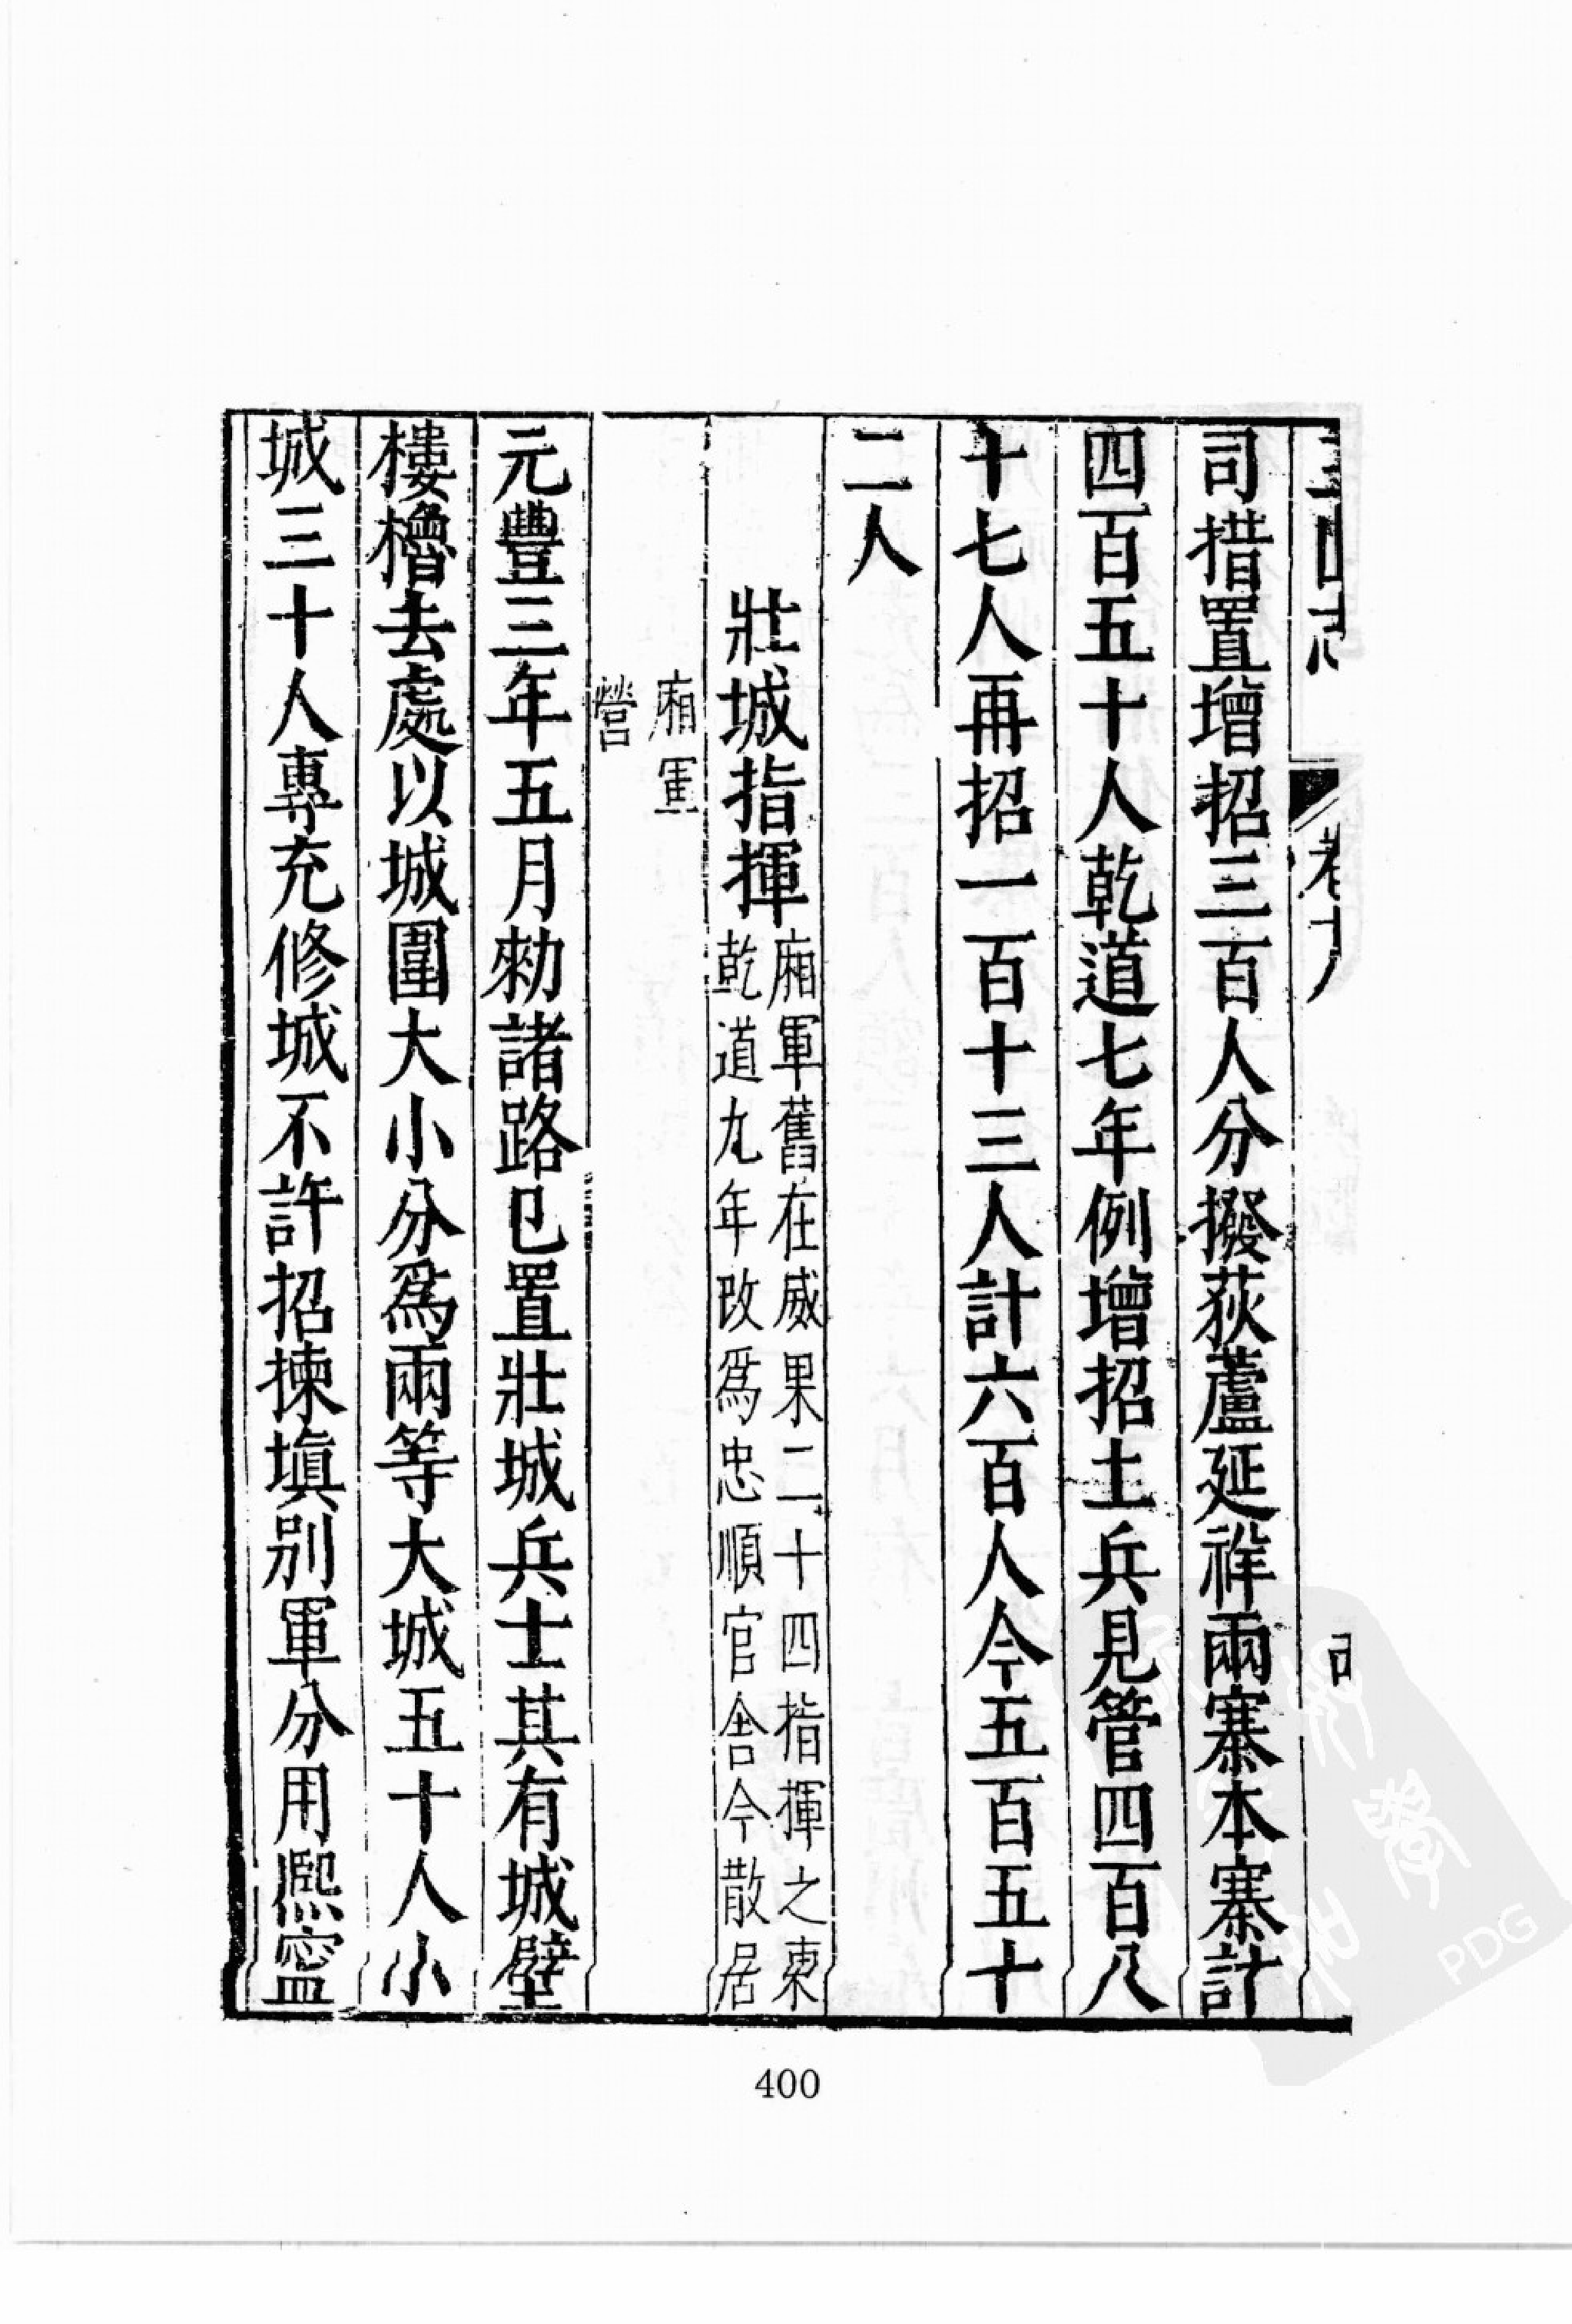 三山志 卷十八
司措置增招三百人分撥荻蘆延祥兩寨本寨計
四百五十人乾道七年例增招土兵見管四百八
十七人再招一百十三人計六百人今五百五十
二人
壯城指揮
廂軍舊在威果二十四指揮之東
乾道九年改爲忠順官舍今散居
廂軍
營
元豐三年五月勑諸路已置壯城兵士其有城壁
樓櫓去處以城圍大小分爲兩等大城五十人小
城三十人專充修城不許招揀塡別軍分用熈寧
400
PDG